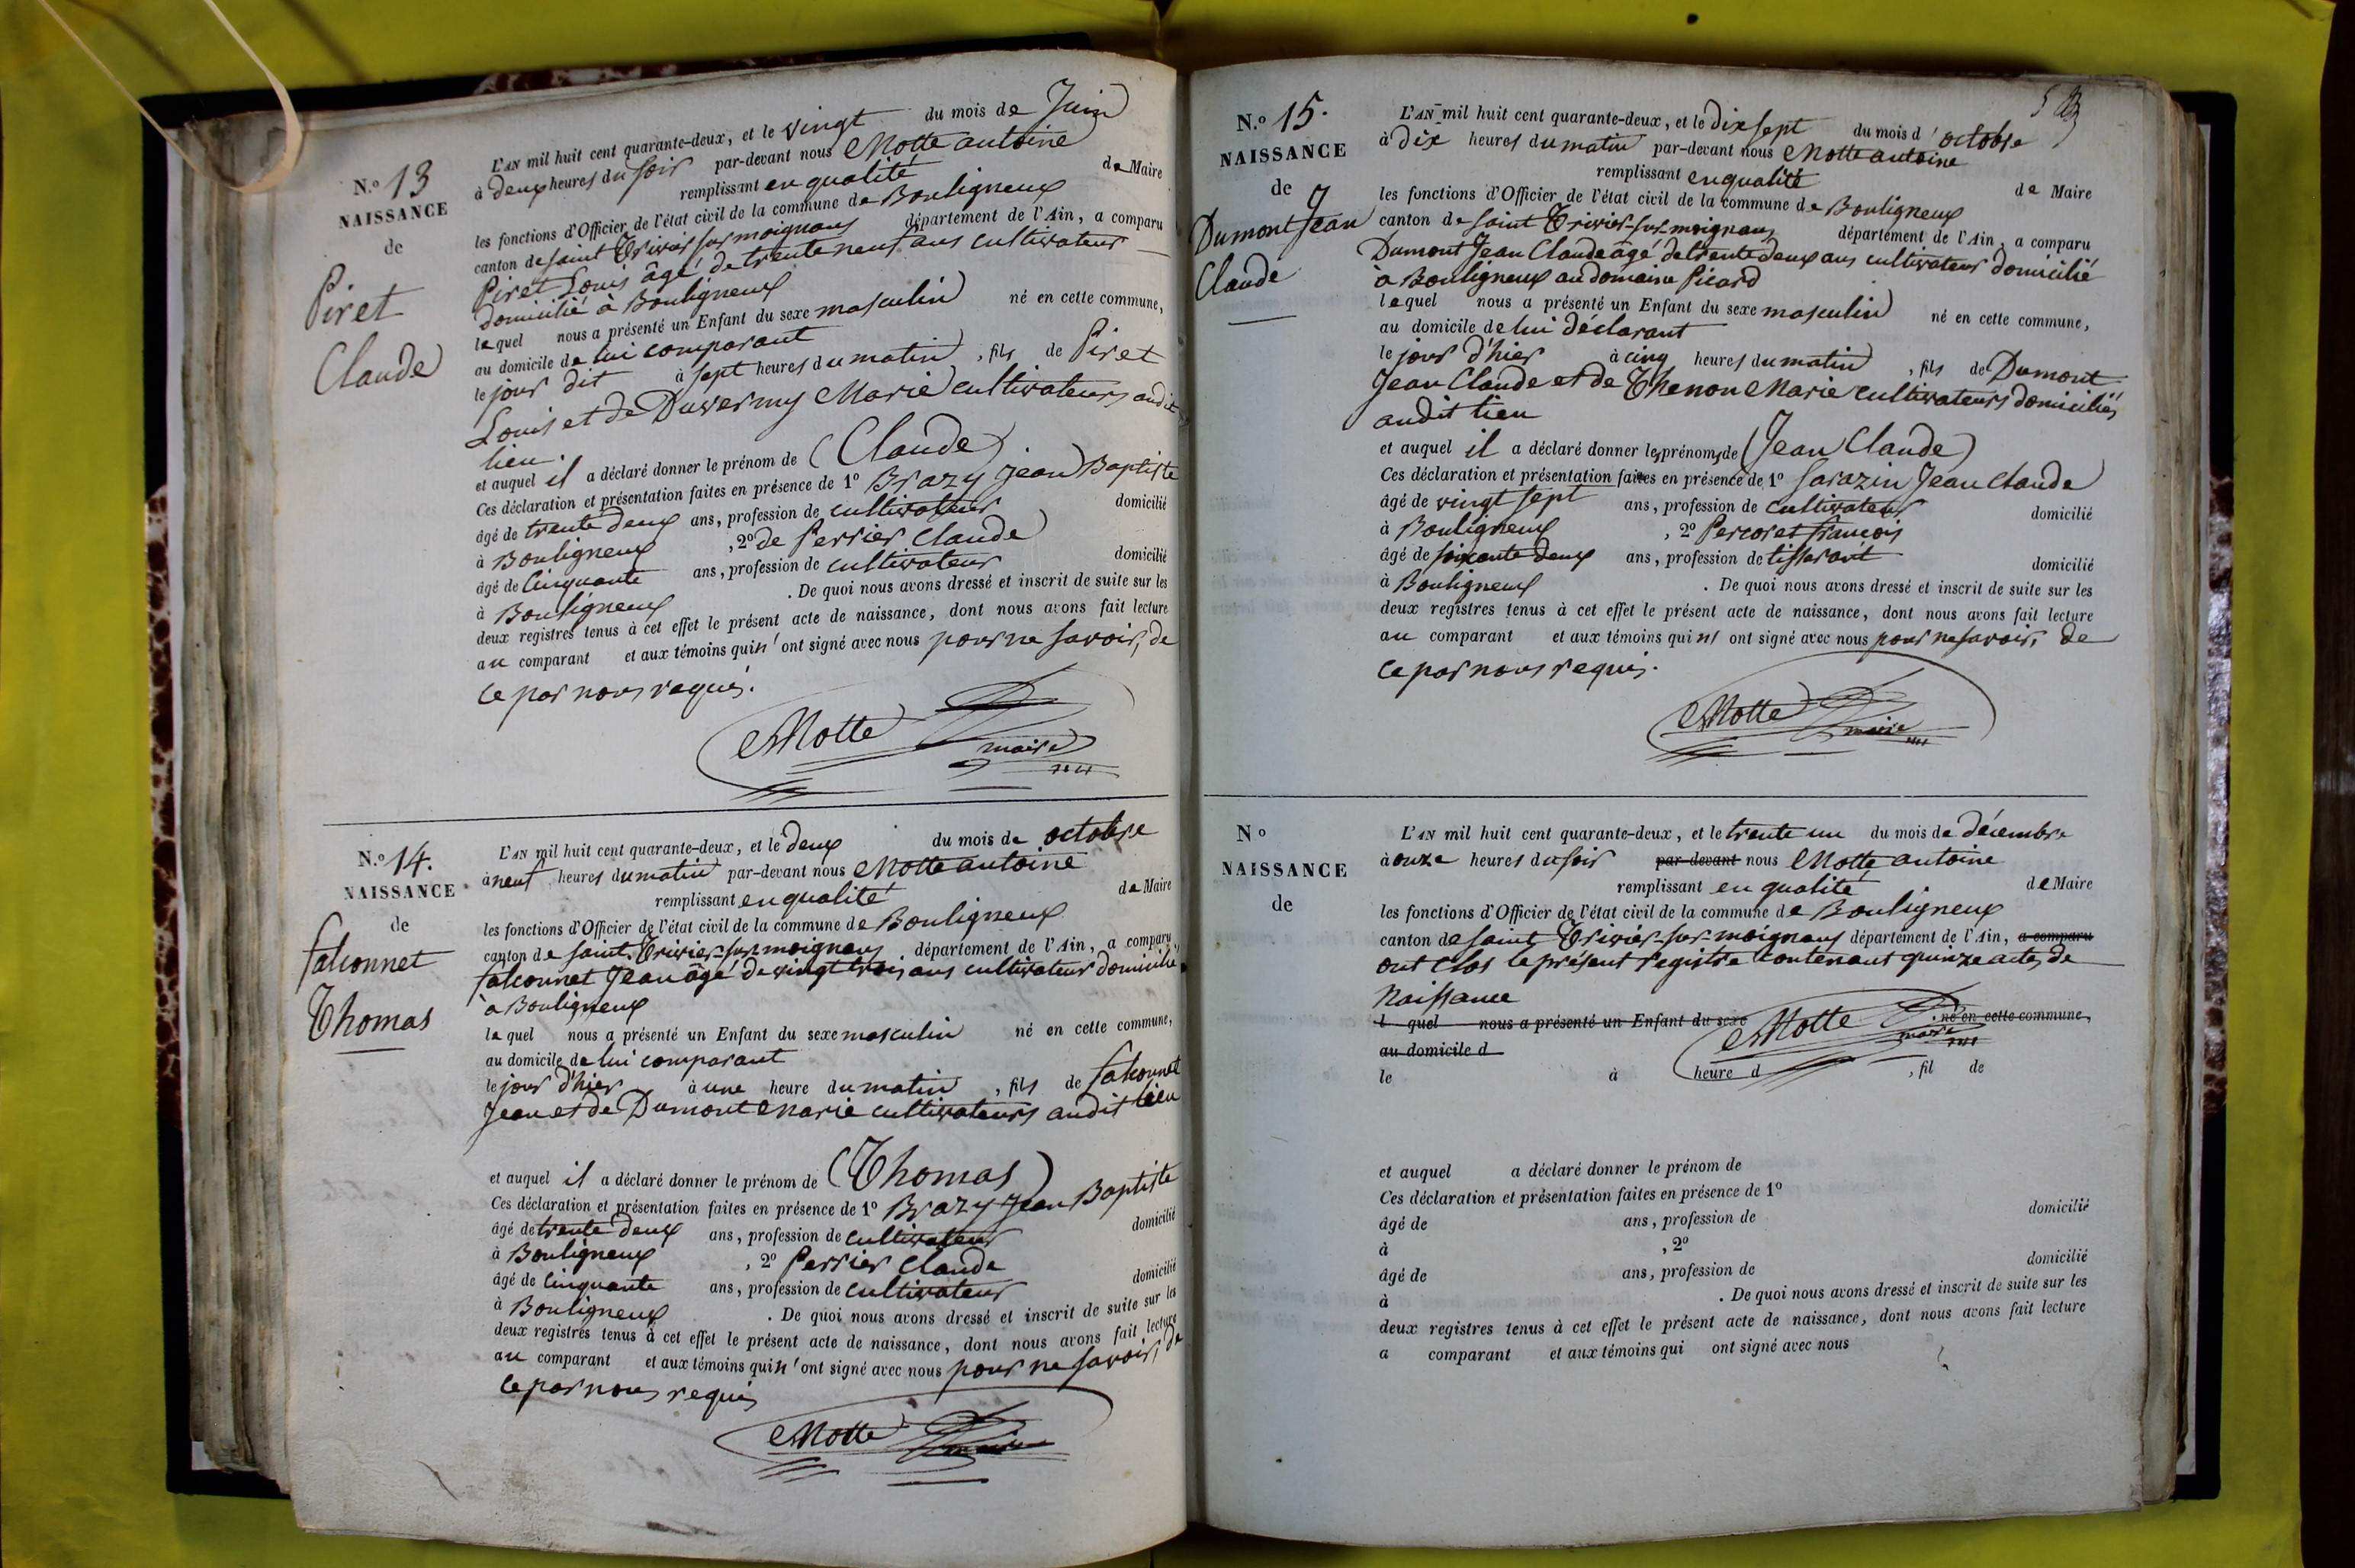 N.º 13
NAISSANCE
de
Piret
Claude
L'AN mil huit cent quarante-deux, et le vingt du mois de Juin
à deux heures du soir par-devant nous Motte antoine
remplissant en qualité de Maire
les fonctions d'Officier de l'état civil de la commune de Bouligneux
canton de saint Trivier sur moignans département de l'Ain, a comparu
Piret Louis âgé de trente neuf ans cultivateur
domicilié à Bouligneux
lequel nous a présenté un Enfant du sexe masculin né en cette commune,
au domicile de lui comparant
le jour dit à sept heures du matin, fils de Piret
Louis et de Duvernay Marie cultivateurs audit
lieu.
et auquel il a déclaré donner le prénom de (Claude)
Ces déclaration et présentation faites en présence de 1º Brazy Jean Baptiste
âgé de trente deux ans, profession de cultivateur domicilié
à Bouligneux, 2º de Perrier Claude
âgé de Cinquante ans, profession de cultivateur domicilié
à Bouligneux. De quoi nous avons dressé et inscrit de suite sur les
deux registres tenus à cet effet le présent acte de naissance, dont nous avons fait lecture
au comparant et aux témoins qui n'ont signé avec nous pour ne savoir, de
ce par nous requis.
Motte
maire
N.º 14.
NAISSANCE
de
falconnet
Thomas
L'AN mil huit cent quarante-deux, et le deux du mois de octobre
à neuf heures du matin par-devant nous Motte antoine
remplissant en qualité de Maire
les fonctions d'Officier de l'état civil de la commune de Bouligneux
canton de saint Trivier-sur-moignans département de l'Ain, a comparu
falconnet Jean âgé de vingt trois ans cultivateur domicilié
à Bouligneux
lequel nous a présenté un Enfant du sexe masculin né en cette commune,
au domicile de lui comparant
le jour d'hier à une heure du matin, fils de falconnet
Jean et de Dumont Marie cultivateurs audit lieu
et auquel il a déclaré donner le prénom de (Thomas)
Ces déclaration et présentation faites en présence de 1º Brazy Jean Baptiste
âgé de trente deux ans, profession de cultivateur domicilié
à Bouligneux, 2º Perrier Claude
âgé de Cinquante ans, profession de cultivateur domicilié
à Bouligneux. De quoi nous avons dressé et inscrit de suite sur les
deux registres tenus à cet effet le présent acte de naissance, dont nous avons fait lecture
au comparant et aux témoins qui n'ont signé avec nous pour ne savoir, de
ce par nous requis
Motte
maire
N.º 15.
NAISSANCE
de
Dumont Jean
Claude
L'AN mil huit cent quarante-deux, et le dix sept du mois d'octobre
à dix heures du matin par-devant nous Motte antoine
remplissant en qualité de Maire
les fonctions d'Officier de l'état civil de la commune de Bouligneux
canton de saint Trivier-sur-moignans département de l'Ain, a comparu
Dumont Jean Claude âgé de trente deux ans cultivateur domicilié
à Bouligneux au domaine Picard
lequel nous a présenté un Enfant du sexe masculin né en cette commune,
au domicile de lui déclarant
le jour d'hier à cinq heures du matin, fils de Dumont
Jean Claude et de Thenon Marie cultivateurs domiciliés
audit lieu
et auquel il a déclaré donner les prénoms de (Jean Claude)
Ces déclaration et présentation faites en présence de 1º Sarazin Jean Claude
âgé de vingt sept ans, profession de cultivateur domicilié
à Bouligneux, 2º Percoret françois
âgé de soixante deux ans, profession de tisserant domicilié
à Bouligneux. De quoi nous avons dressé et inscrit de suite sur les
deux registres tenus à cet effet le présent acte de naissance, dont nous avons fait lecture
au comparant et aux témoins qui n'ont signé avec nous pour ne savoir, de
ce par nous requis.
Motte
maire
Nº
NAISSANCE
de
L'AN mil huit cent quarante-deux, et le trente un du mois de décembre
à onze heures du soir par-devant nous Motte antoine
remplissant en qualité de Maire
les fonctions d'Officier de l'état civil de la commune de Bouligneux
canton de saint Trivier-sur-moignans département de l'Ain, a comparu
ont clos le présent registre contenant quinze actes de
Naissance
l quel nous a présenté un Enfant du sexe né en cette commune,
Motte
maire
au domicile d
le à heure d, fil de
et auquel a déclaré donner le prénom de
Ces déclaration et présentation faites en présence de 1º
âgé de ans, profession de domicilié
à, 2º
âgé de ans, profession de domicilié
à. De quoi nous avons dressé et inscrit de suite sur les
deux registres tenus à cet effet le présent acte de naissance, dont nous avons fait lecture
a comparant et aux témoins qui ont signé avec nous